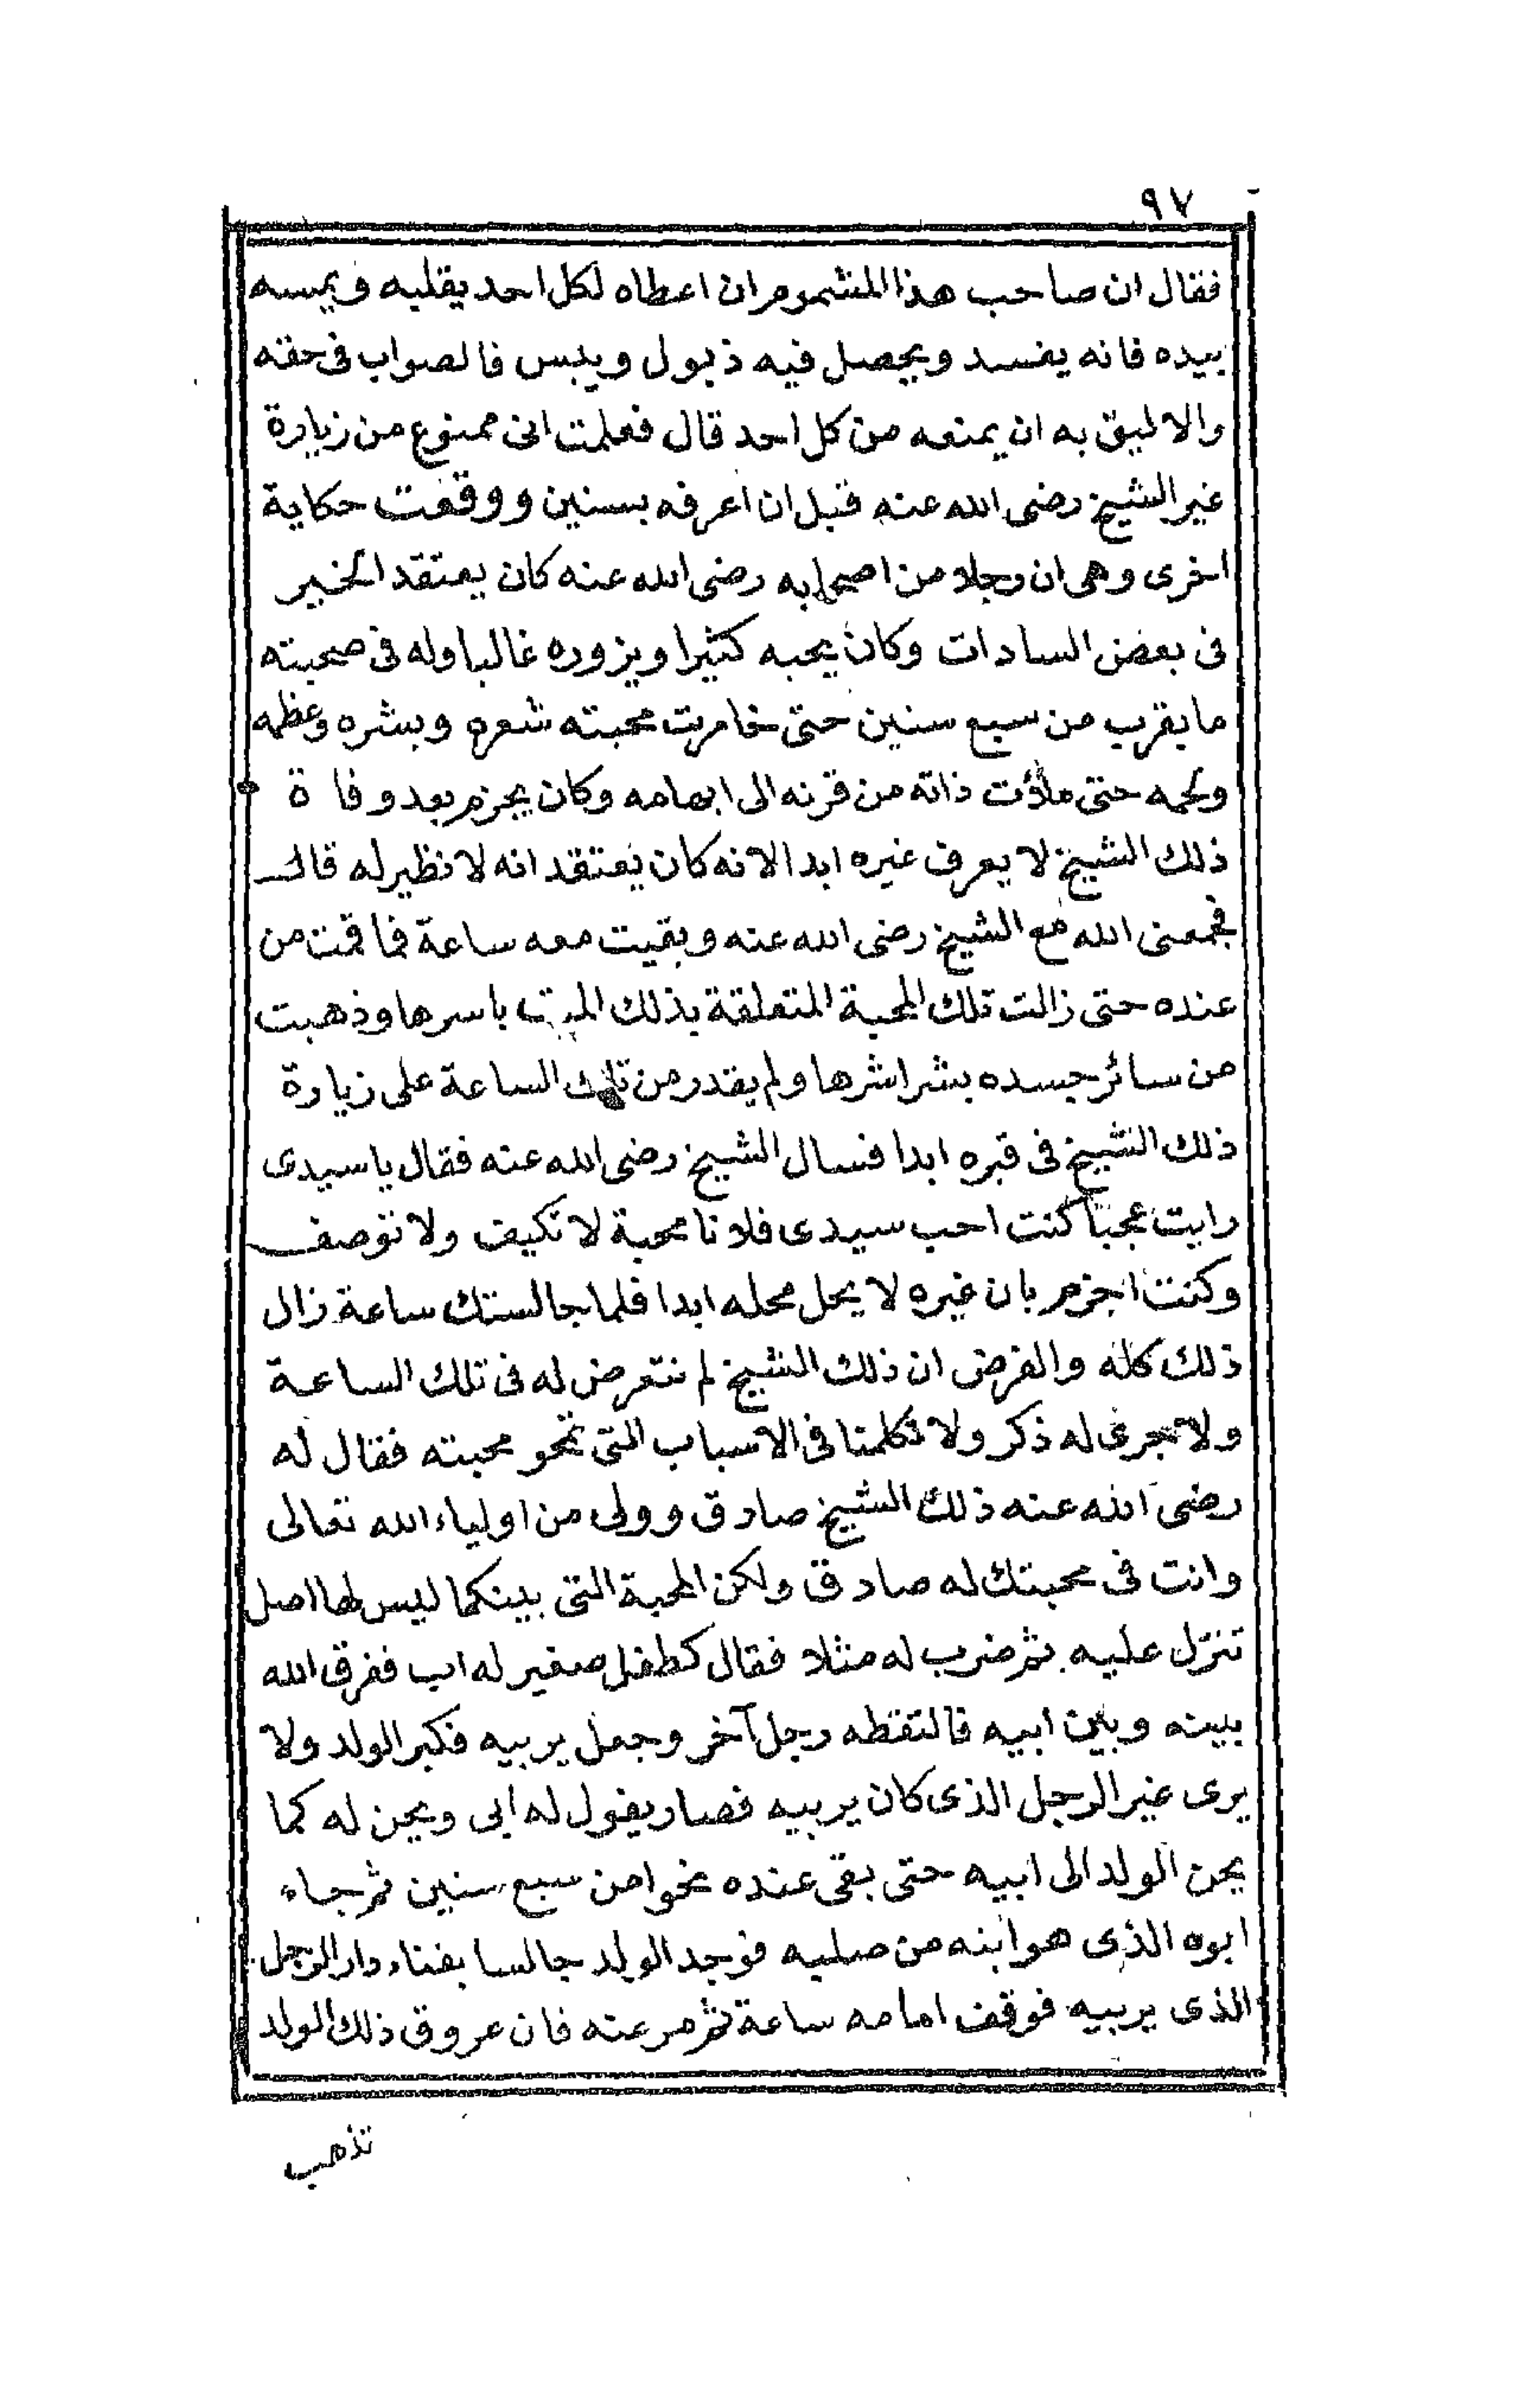 ٩٧
فقال ان صاحب هذا المشموم ان اعطاه لكل احد يقلبه ويمسه
بيده فانه يفسد ويحصل فيه ذبول ويبس فالصواب فى حقه
والاليق به ان يمنعه من كل احد قال فعلمت انى ممنوع من زيارة
غير الشيخ رضى الله عنه قبل ان اعرفه بسنين ووقعت حكاية
اخرى وهى ان رجلا من اصحابه رضى الله عنه كان يعتقد الخير
فى بعض السادات وكان يحبه كثيرا ويزوره غالبا وله فى صحبته
ما يقرب من سبع سنين حتى خامرت محبته شعره وبشره وعظمه
ولحمه حتى ملأت ذاته من قرنه الى ابهامه وكان يجزم بعد وفاة
ذلك الشيخ لا يعرف غيره ابدا لانه كان يعتقد انه لا نظير له قال
فجمعنى الله مع الشيخ رضى الله عنه وبقيت معه ساعة فما قمت من
عنده حتى زالت تلك المحبة المتعلقة بذلك باسرها وذهبت
من سائر جسده بشراشرها ولم يقدر من تلك الساعة على زيارة
ذلك الشيخ فى قبره ابدا فسال الشيخ رضى الله عنه فقال ياسيدى
رايت عجبا كنت احب سيدى فلانا محبة لا تكيف ولا توصف
وكنت اجزم بان غيره لا يحل محله ابدا فلما جالستك ساعة زال
ذلك كله والفرض ان ذلك الشيخ لم نتعرض له فى تلك الساعة
ولا جرى له ذكر ولا تكلمنا فى الاسباب التى تمحو محبته فقال له
رضى الله عنه ذلك الشيخ صادق وولى من اولياء الله تعالى
وانت فى محبتك له صادق ولكن المحبة التى بينكما ليس لها اصل
تنزل عليه ثم ضرب له مثلا فقال كطفل صغير له اب ففرق الله
بينه وبين ابيه فالتقطه رجل آخر وجعل يربيه فكبر الولد ولا
يرى غير الرجل الذى كان يربيه فصار يقول له ابى ويحن له كما
يحن الولد الى ابيه حتى بقى عنده نحوا من سبع سنين ثم جاء
ابوه الذى هو ابنه من صلبه فوجد الولد جالسا بفناء دار الرجل
الذى يربيه فوقف امامه ساعة ثم مر عنه فان عروق ذلك الولد
تذهب